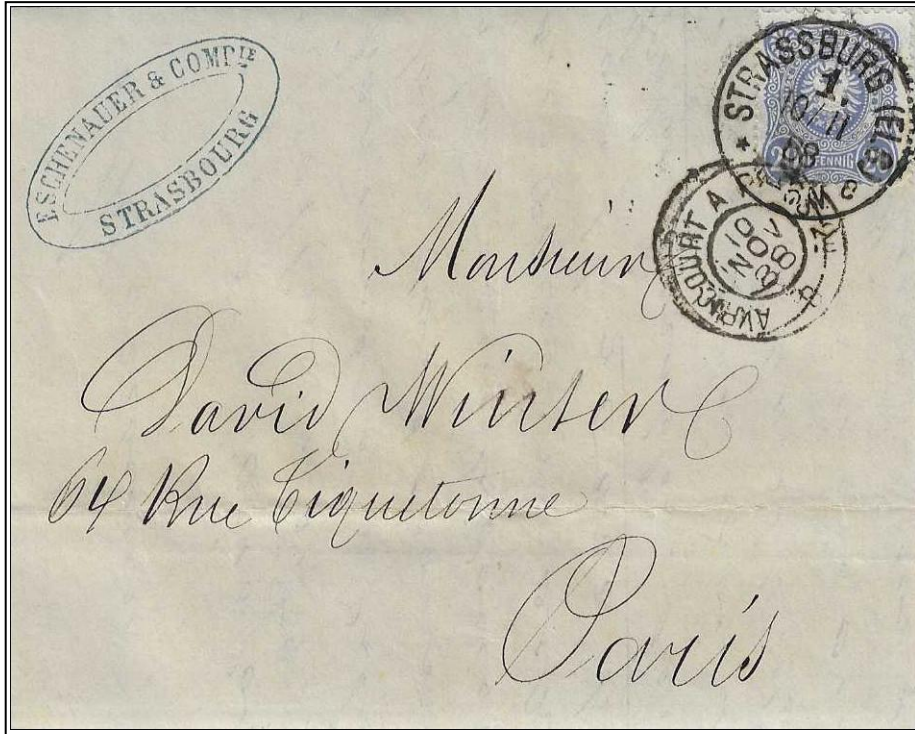 ESCHENAUER & COMPIE
STRASBOURG
STRASSBURG (ELS)
1.
10/11
88
PFENNIG
AVRICOURT A
10
NOV
88
Monsieur
David Winter
64 Rue Tiquetonne
Paris